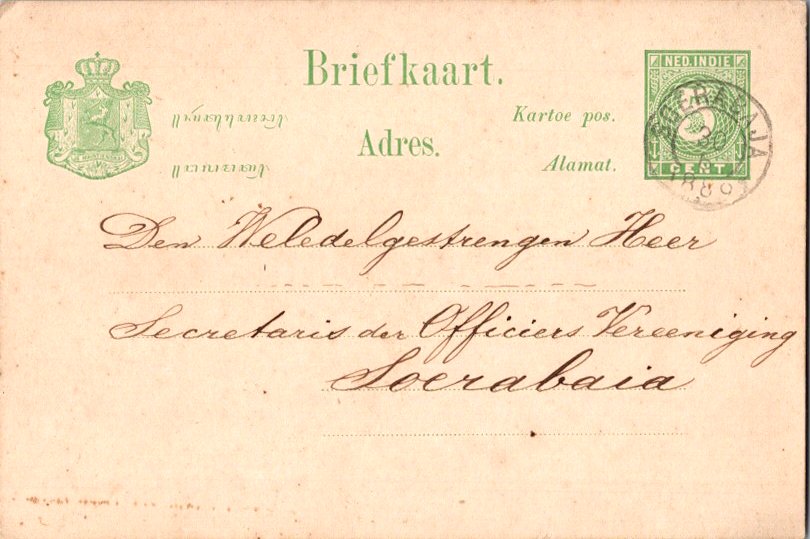 Briefkaart.
NED. INDIE
Kartoe pos.
Adres.
Alamat.
CENT
SOERABAJA
Den Weledelgestrengen Heer
Secretaris der Officiers Vereeniging
Soerabaia